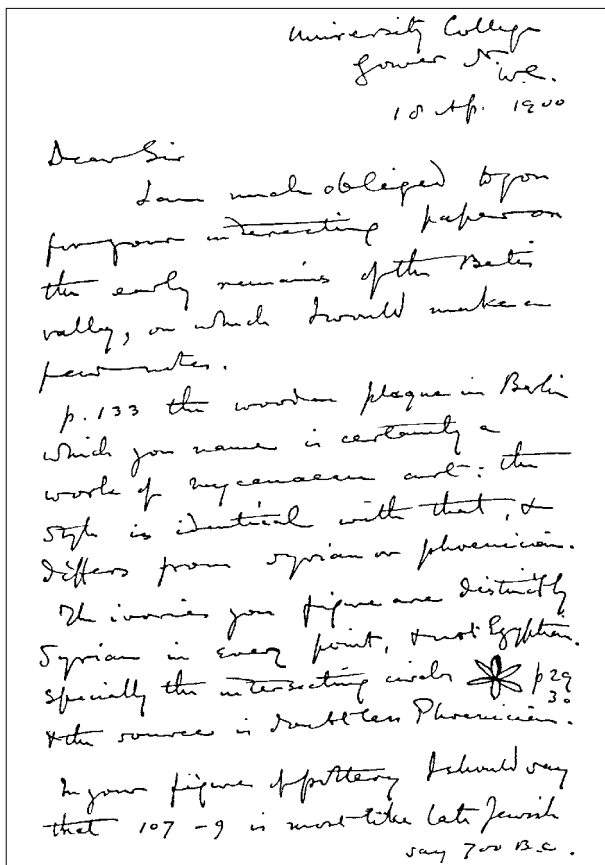 University College
Gower St.
W.C.
18 Ap. 1900
Dear Sir
I am much obliged to you
for your interesting paper on
the early remains of the Betis
valley, on which I would make a
few notes.
p. 133 the wooden plaque in Berlin
which you name is certainly a
work of mycenaean art: the
style is identical with that, &
differs from syrian or phoenician.
The ivories you figure are distinctly
Syrian in every point, & not Egyptian.
specially the intersecting circles p 29
30
& the source is doubtless Phoenician.
In your figure of pottery I should say
that 107-9 is most like late Jewish
say 700 B.C.